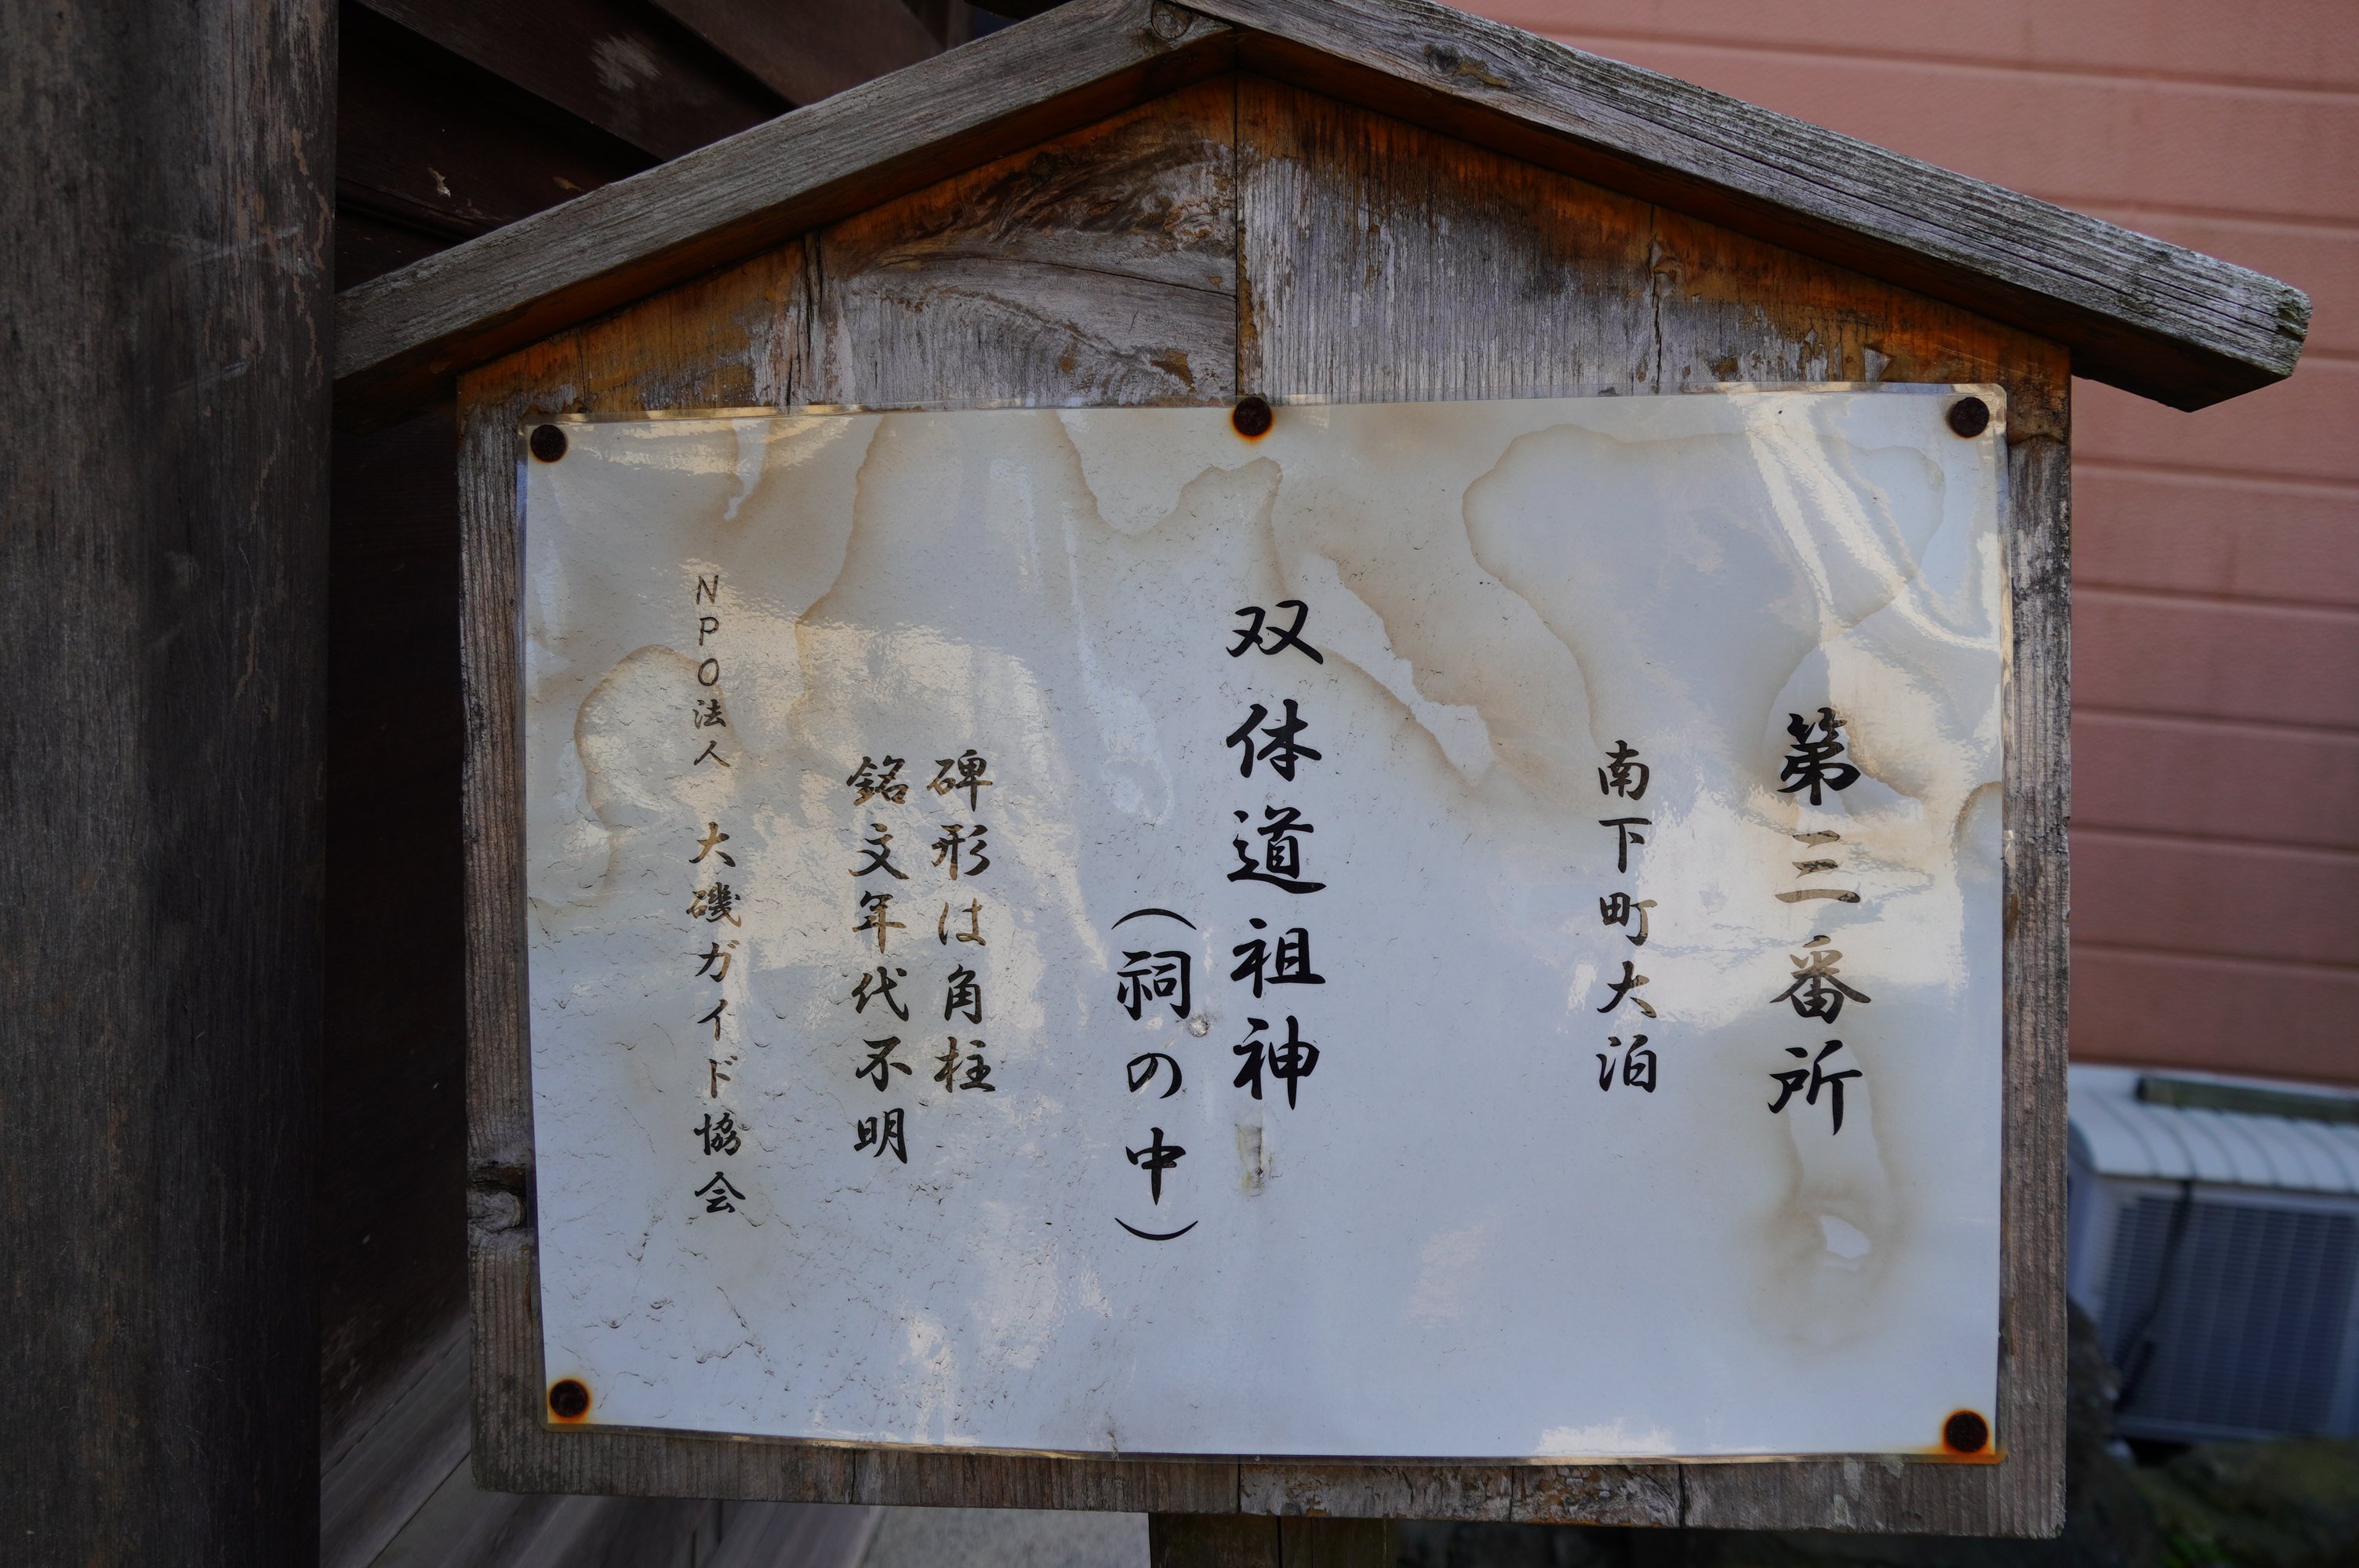 第三番所
南下町大泊
双体道祖神
(祠の中)
碑形は角柱
銘文年代不明
NPO法人 大磯ガイド協会